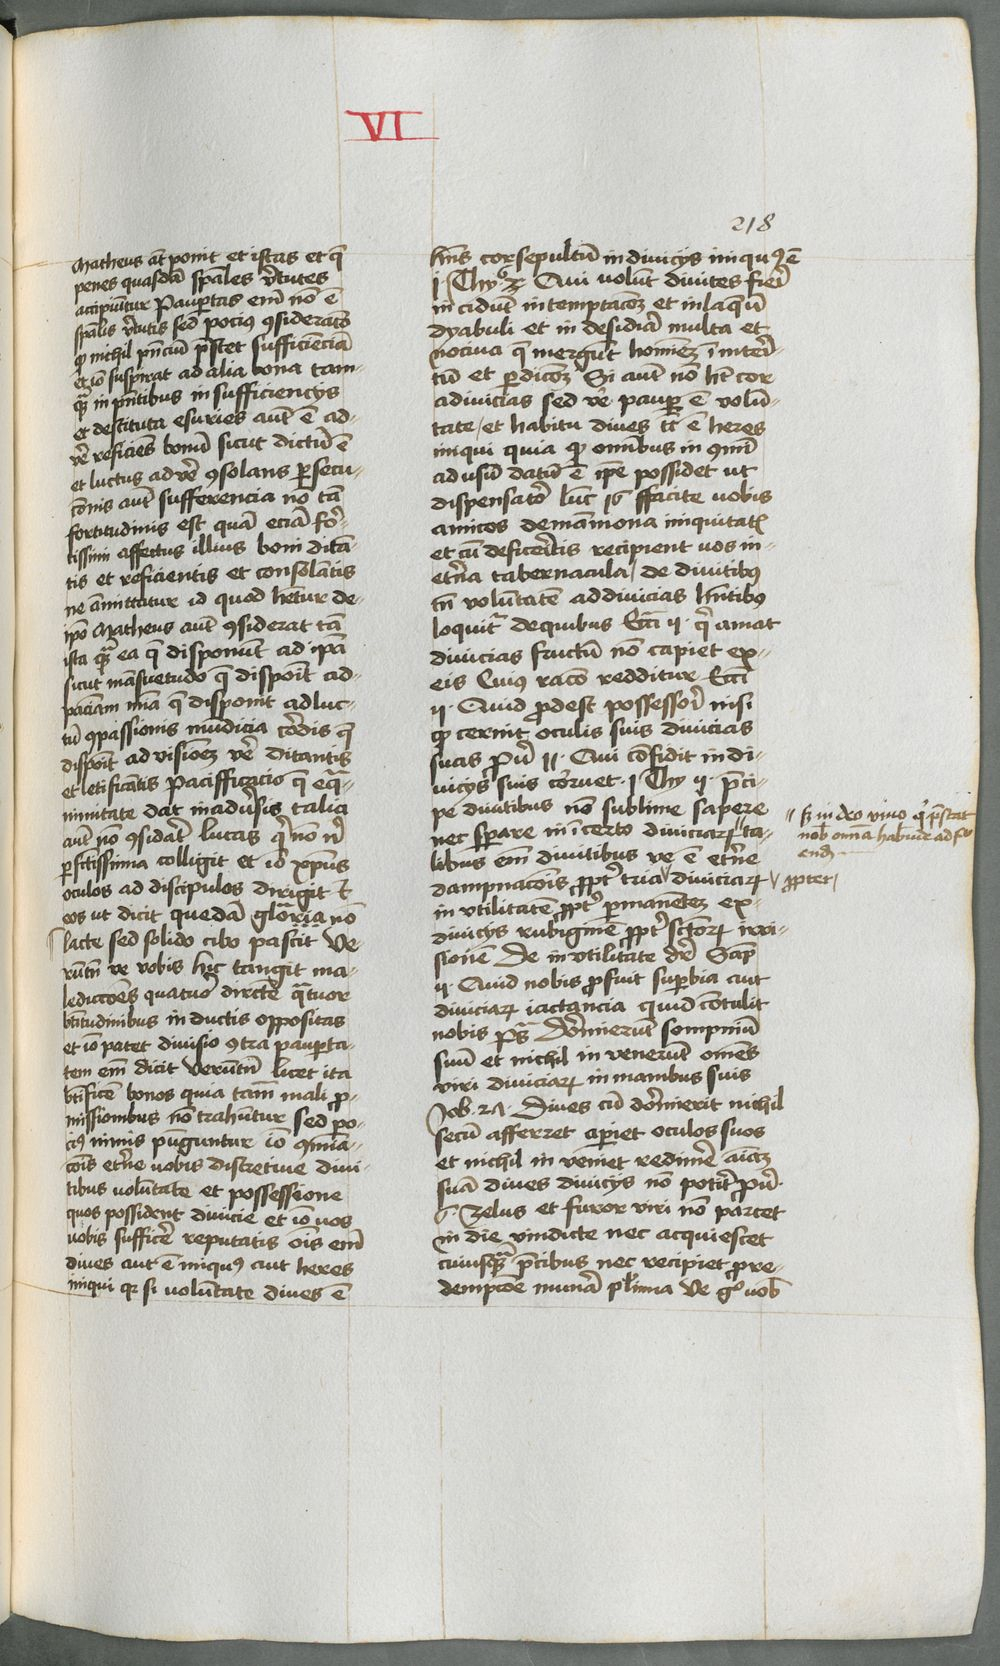 VI
218
Matheus aūt ponit et istas et q̄
penes quasdā spāles v̄tutes
accipiūtur Paup̄tas em̄ nō ē
spālis v̄tutis sed pociꝰ ꝯsideratō
qꝫ nichil p̄nciū p̄stet sufficiēciā
et iō suspirat ad alia bona tam-
qꝫ in p̄ntibus insufficiencijs
et destituta esuries aūt ē ad-
vē reficiēs bonū sicut dictū ē
et luctus ad vē ꝯsolans p̄secu-
cōnis aūt sufferencia nō tā
fortitudinis est quā eciā for-
tissimi affectus illius boni dità-
tis et reficientis et consolātis
ne āmittatur id quod hetur de-
ip̄o Matheus aūt ꝯsiderat tā
ista qꝫ ea q̄ disponūt ad ip̄a
sicut māsuetudo q̄ dispoīt ad-
paciam mīa q̄ disponit ad luc-
tū ꝯpassionis mūdicia cordis q̄
dispoīt ad visionē vē ditantis
et letificātis Paciffcacio q̄ eqꝫ-
nimitate dat in adūsis talia
aūt nō ꝯsidat̄ lucas qꝫ nō nꝫ
p̄fctissima colligit et iō xp̄us
oculos ad discipulos dirigit et
eos ut dicit quedā gloria nō
lacte sed solido cibo pascit Ve-
rūtn̄ ve vobis hic tangit ma-
ledictōes quatuor dircte qꝫtuor
btitudinibus inductis oppositas
et iō patet divisio ꝯtra paup̄ta-
tem em̄ dicit Verūtn̄ licet ita
btificē bonos quia tam̄ mali ꝓ-
missionibus nō trahūtur sed po-
ciꝰ nimis pūguntur iō ꝯmīa-
cōis et̄ne vobis discretive divi-
tibus volūtate et possessione
quos possident divicie et iō vos
vobis sufficē reputatis oīs em̄
dives aut ē iniquꝰ aut heres
iniqui qꝛ si volūtate dives ē
hn̄s cor sepultū in divicijs iniquꝰ ē
i Thyº Qui volūt divites fieri
incidūt in temptacōꝫ et in laqueū
dyabuli et in desidiā multa et
nociva q̄ mergūt homīeꝫ ī interi-
tū et p̄dicōꝫ Si aūt nō ht̄ cor
ad divicias sed ve pauꝑ ē volū-
tate / et habitu dives tc̄ ē heres
iniqui quia qꝫ omībus in ꝯmī
ad usū datū ē ip̄e possidet ut
dispensator luc̄ 16 ffacite vobis
amicos demāmona iniquitatꝭ
et cū defeceritis recipient vos in-
et̄na tabernacula / de divitibꝰ
tn̄ volūtatē ad divicias hn̄tibꝰ
loquit̄ dequibus Ecc̄i ij qꝫ amat
divicias fructū nō capiet ex-
eis Cuiꝰ racō redditur Ecc̄i
ij Quid ꝓdest possessori nisi
qꝫ cernit oculis suis divicias
suas Pu̇ 11 Qui cōfidit in di-
vicijs suis corruet i Thy ij p̄ci-
pe divitibus nō sublime sapere
nec sꝑare in īcerto diviciaꝝ ta-
libus em̄ divitibus ve ē et̄ne
dampnacōis ꝓpt̄ tria diviciaꝝ
in utilitatē ꝓpt̄ ꝑmanētē ex-
divicijs rubiginē ꝓpt̄ sctōꝝ irri-
sionē De in utilitate dr̄ Sap̄
ij Quid nobis ꝓfuit suꝑbia aut
diviciaꝝ iactancia quid cōtulit
nobis Dormierūt sompniū
suū et nichil invenerūt om̄es
viri diviciaꝝ in manibus suis
Job 27 Dives cū dormierit nichil
secū afferret aꝑiet oculos suos
et nichil inveniet redimē aīaꝫ
suā dives divicijs nō potit̄ Pu̇
6 Zelus et furor viri nō parcet
in die vindicte nec acquiescet
cuiusqꝫ p̄cibus nec recipiet ꝓ re-
dempcōe munā plīma Ve gº vob
// sꝫ in deo vivo qꝫ p̄stat
nob̄ omīa habūde ad fru
endꝫ
ꝓpter